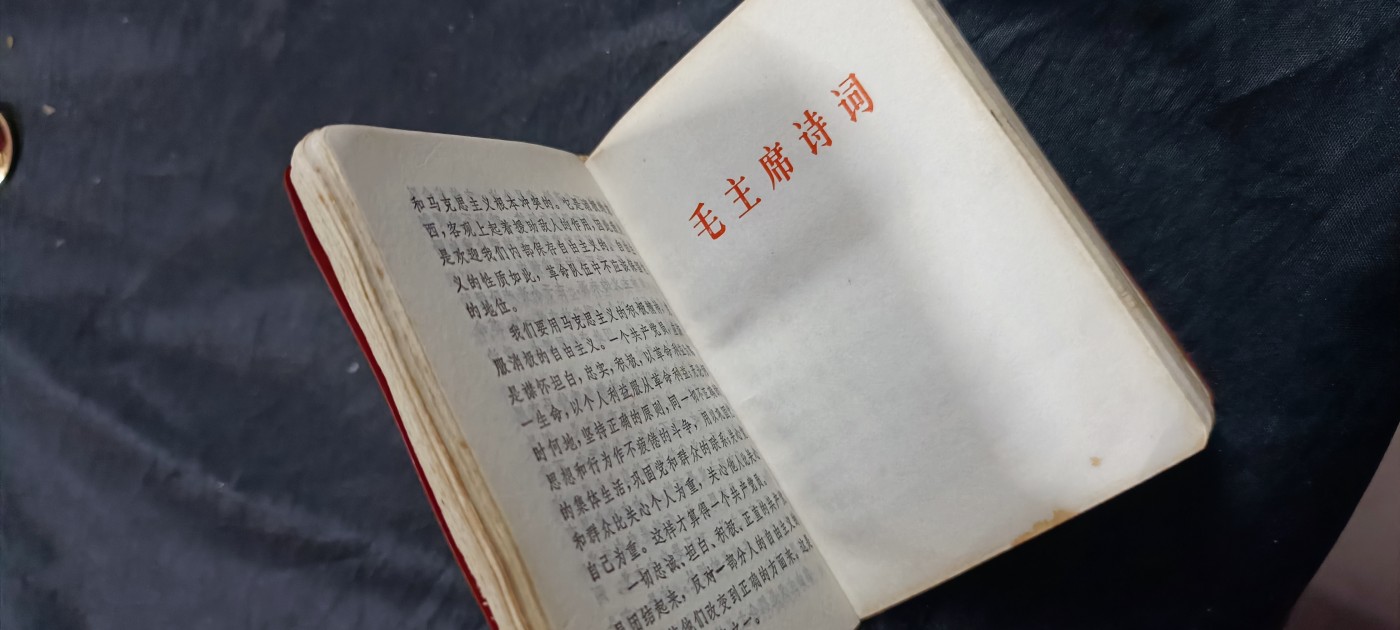 和马克思主义根本冲突的。它是消极的
西，客观上起着援助敌人的作用，因此
是欢迎我们内部保存自由主义的。自由
义的性质如此，革命队伍中不应该保留
的地位。
我们要用马克思主义的积极精神，
服消极的自由主义。一个共产党员，
是襟怀坦白，忠实，积极，以革命利益为
一生命，以个人利益服从革命利益；无论
时何地，坚持正确的原则，同一切不正确
思想和行为作不疲倦的斗争，用以巩固
的集体生活，巩固党和群众的联系；关心
和群众比关心个人为重，关心他人比关心
自己为重。这样才算得一个共产党员。
一切忠诚、坦白、积极、正直的共产
员团结起来，反对一部分人的自由主义
他们改变到正确的方面来。这是
之一。
毛主席诗词